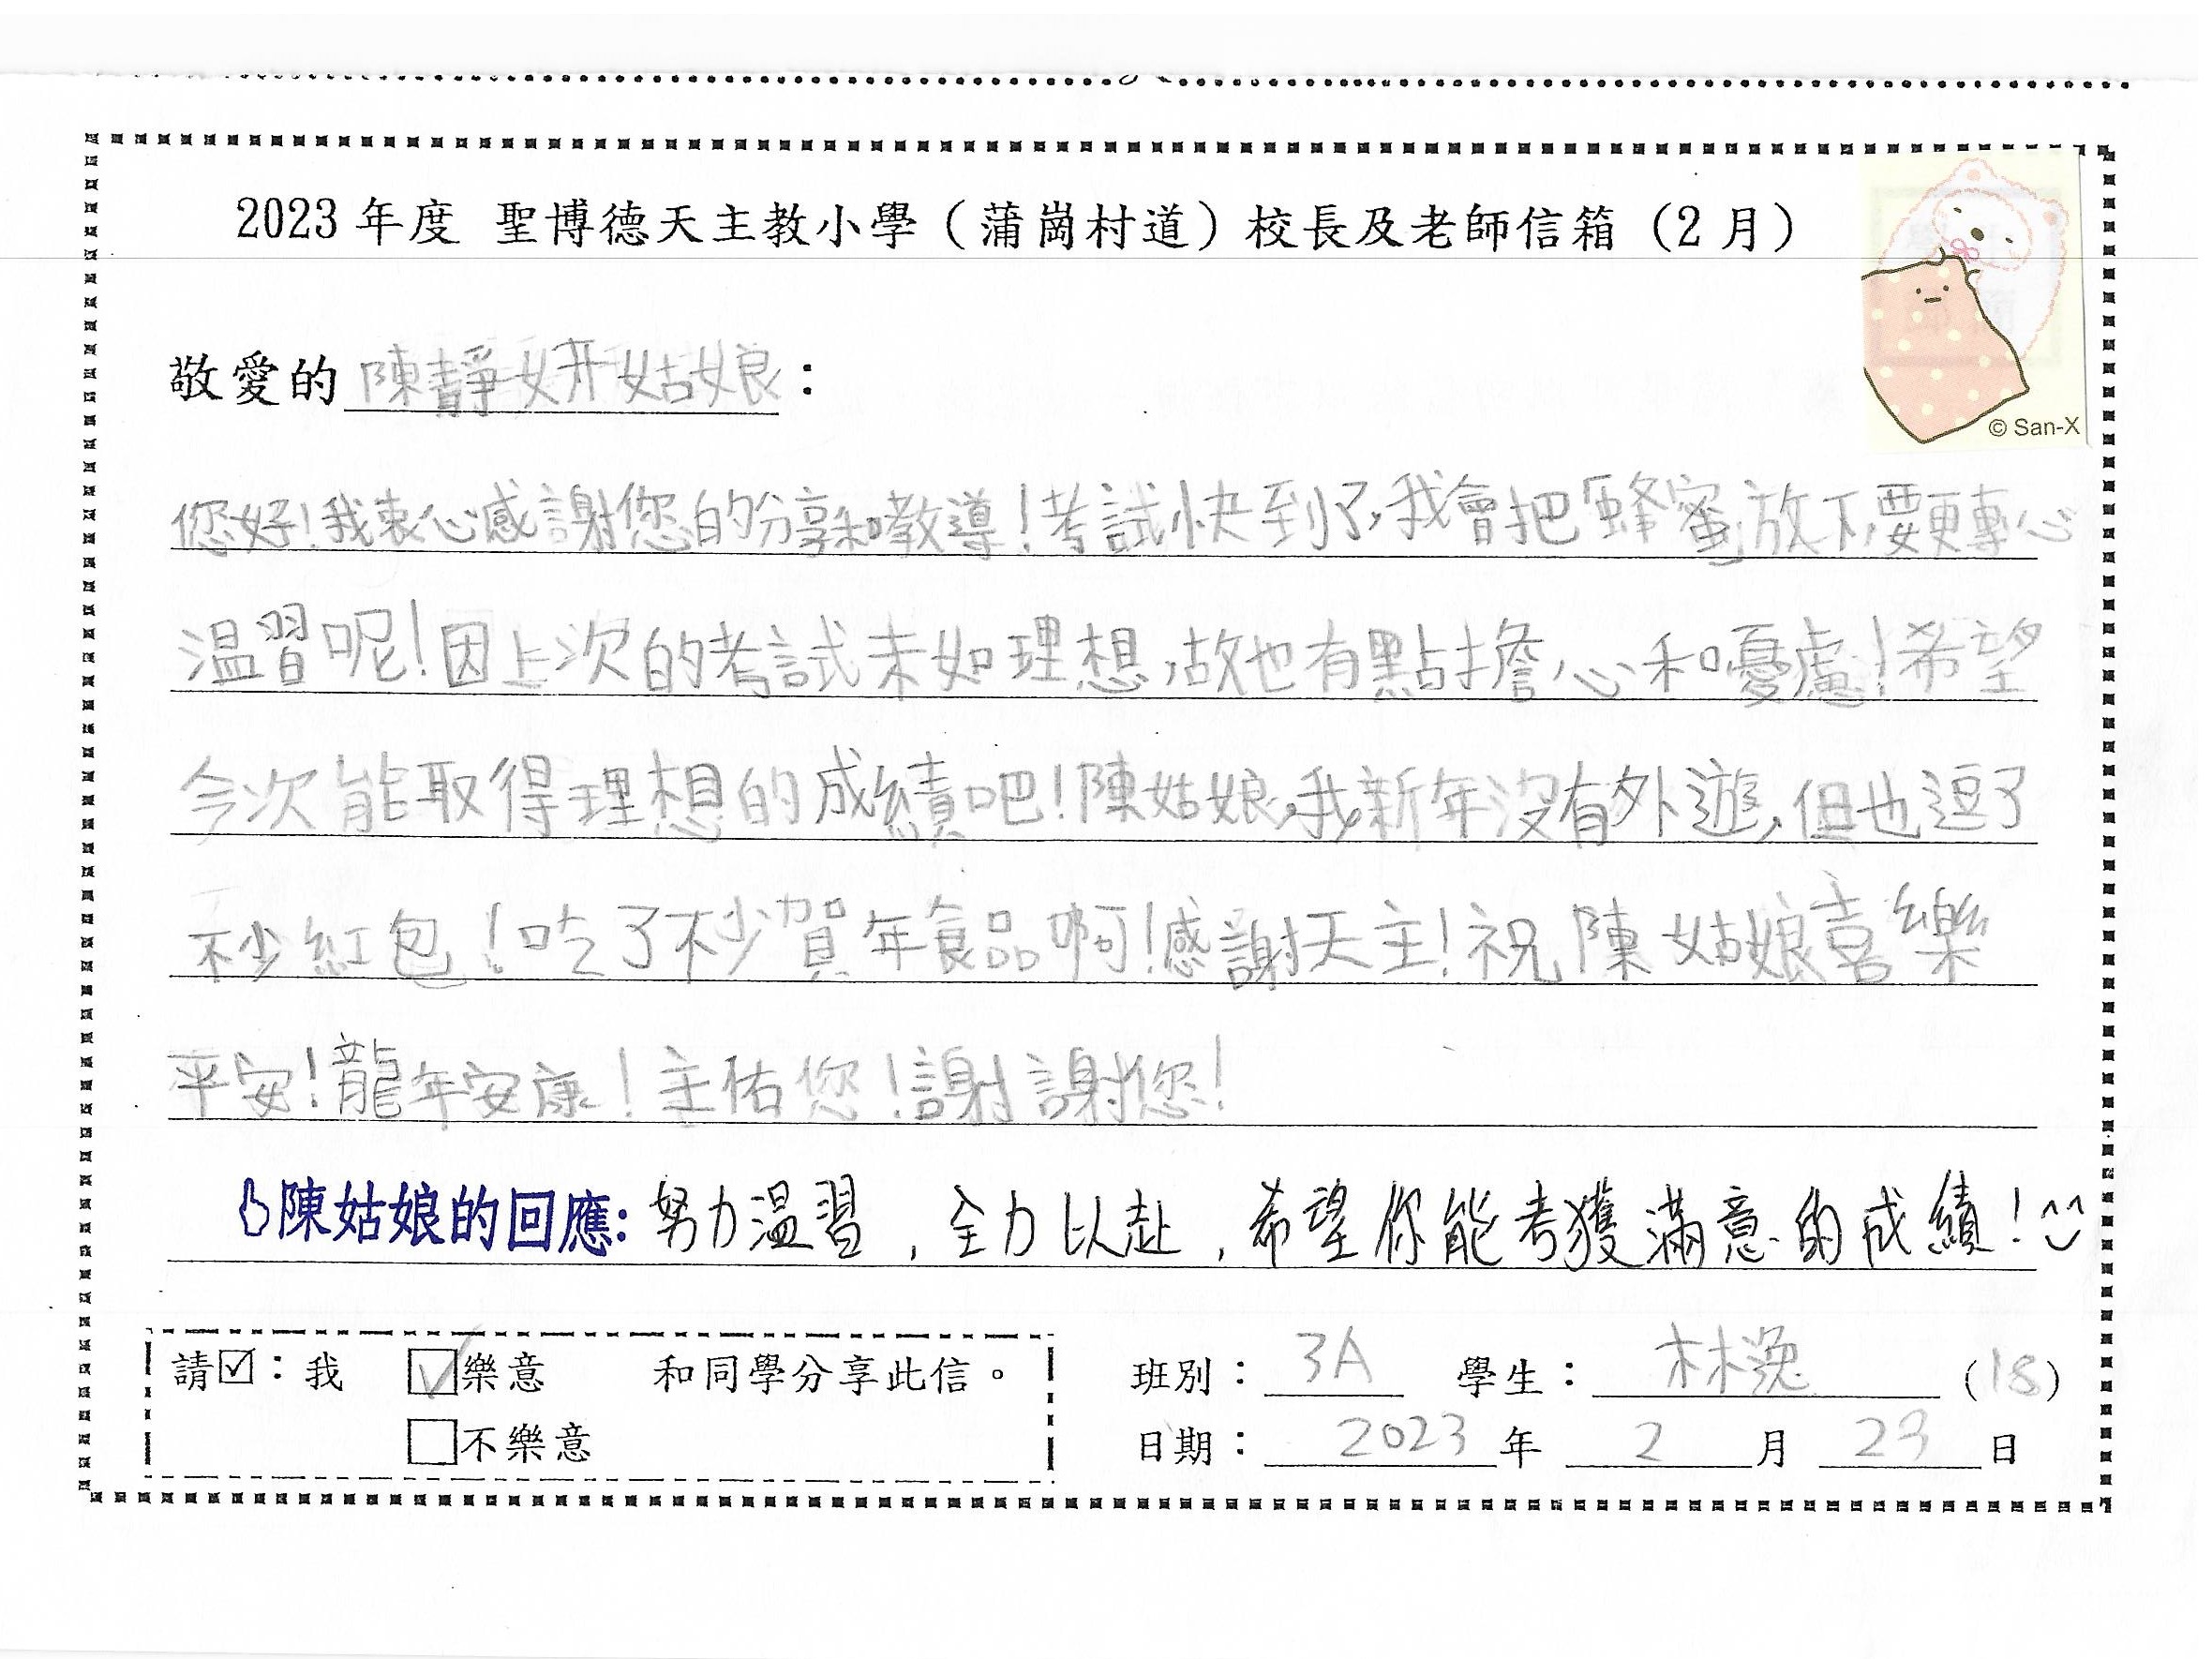 2023 年度 聖博德天主教小學（蒲崗村道）校長及老師信箱（2 月）
© San-X
敬愛的 陳靜妍姑娘：
您好！我衷心感謝您的分享和教導！考試快到了，我會把「蜂蜜」放下，要更專心
温習呢！因上次的考試未如理想，故也有點擔心和憂慮！希望
今次能取得理想的成績吧！陳姑娘，我新年沒有外遊，但也逗了
不少紅包！吃了不少賀年食品啊！感謝天主！祝陳姑娘喜樂
平安！龍年安康！主佑您！謝謝您！
陳姑娘的回應：努力温習，全力以赴，希望你能考獲滿意的成績！
請☑：我 ☑樂意 和同學分享此信。
☐不樂意
班別：3A 學生：林逸（18）
日期：2023 年 2 月 23 日